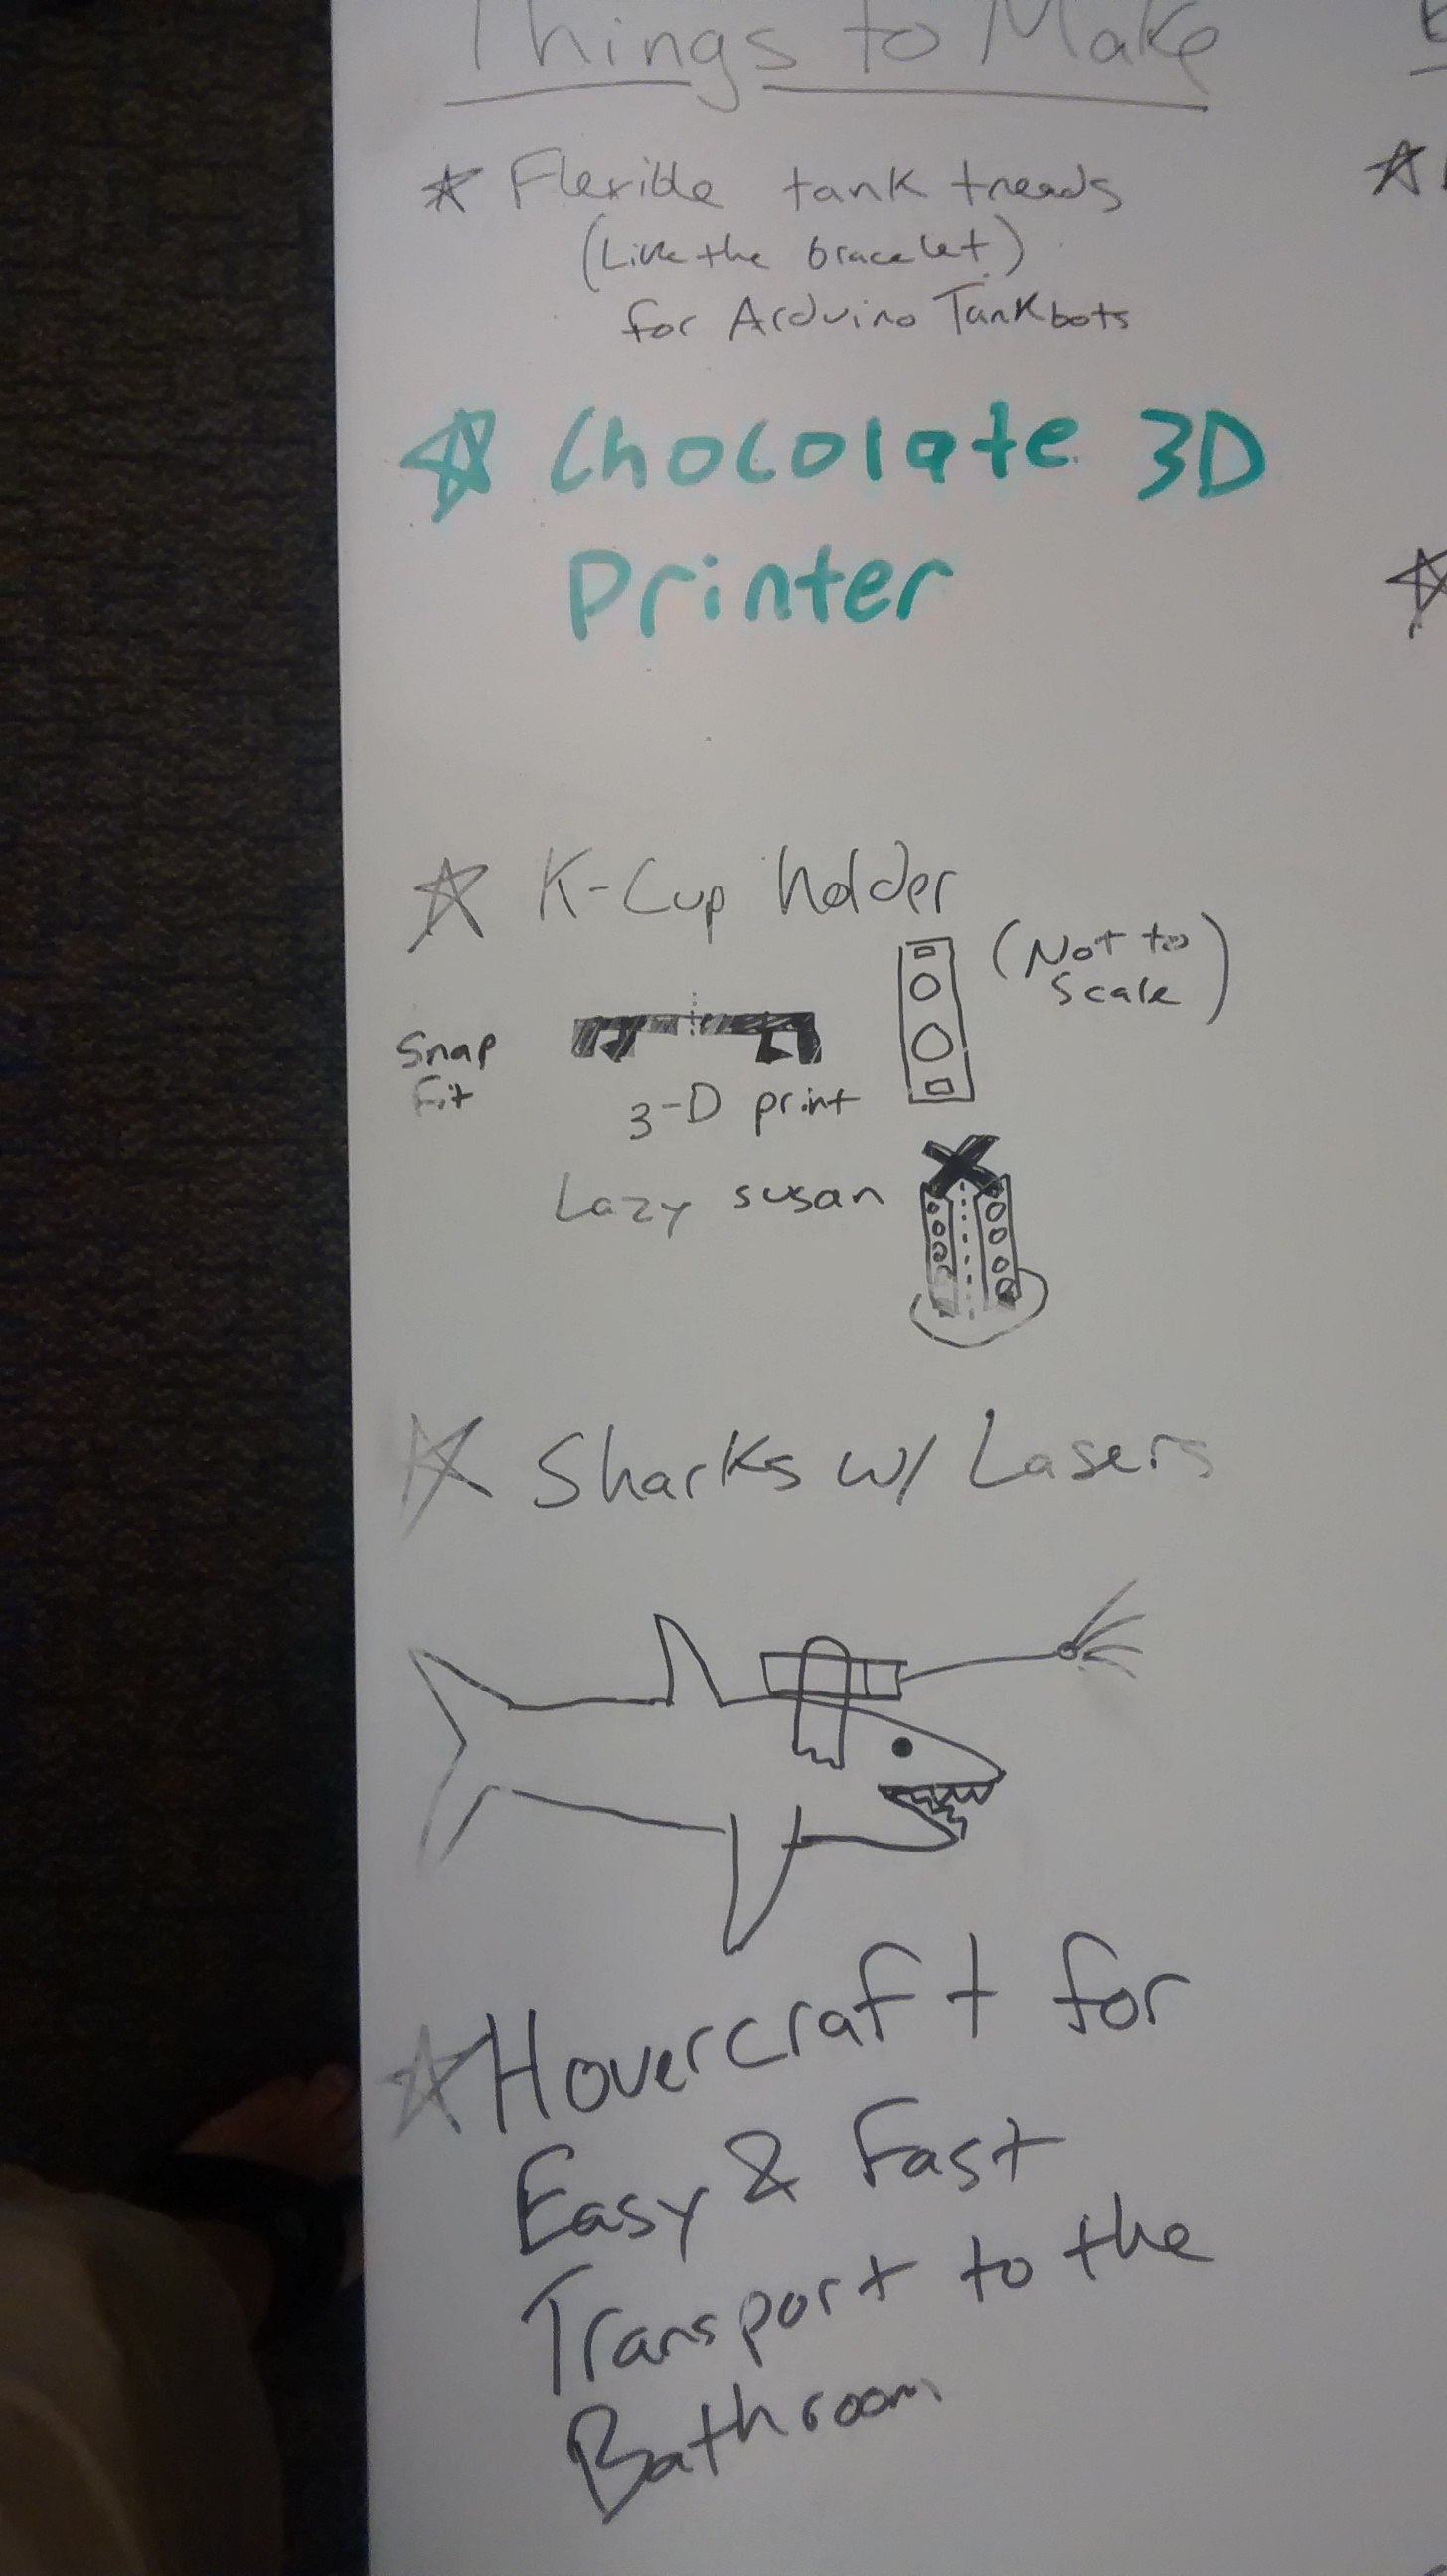 Things to Make
Flexible tank treads
(Like the bracelet)
for Arduino Tankbots
Chocolate 3D
Printer
K-Cup holder
(Not to
Scale)
Snap
Fit
3-D print
Lazy susan
Sharks w/ Lasers
Hovercraft for
Easy & Fast
Transport to the
Bathroom